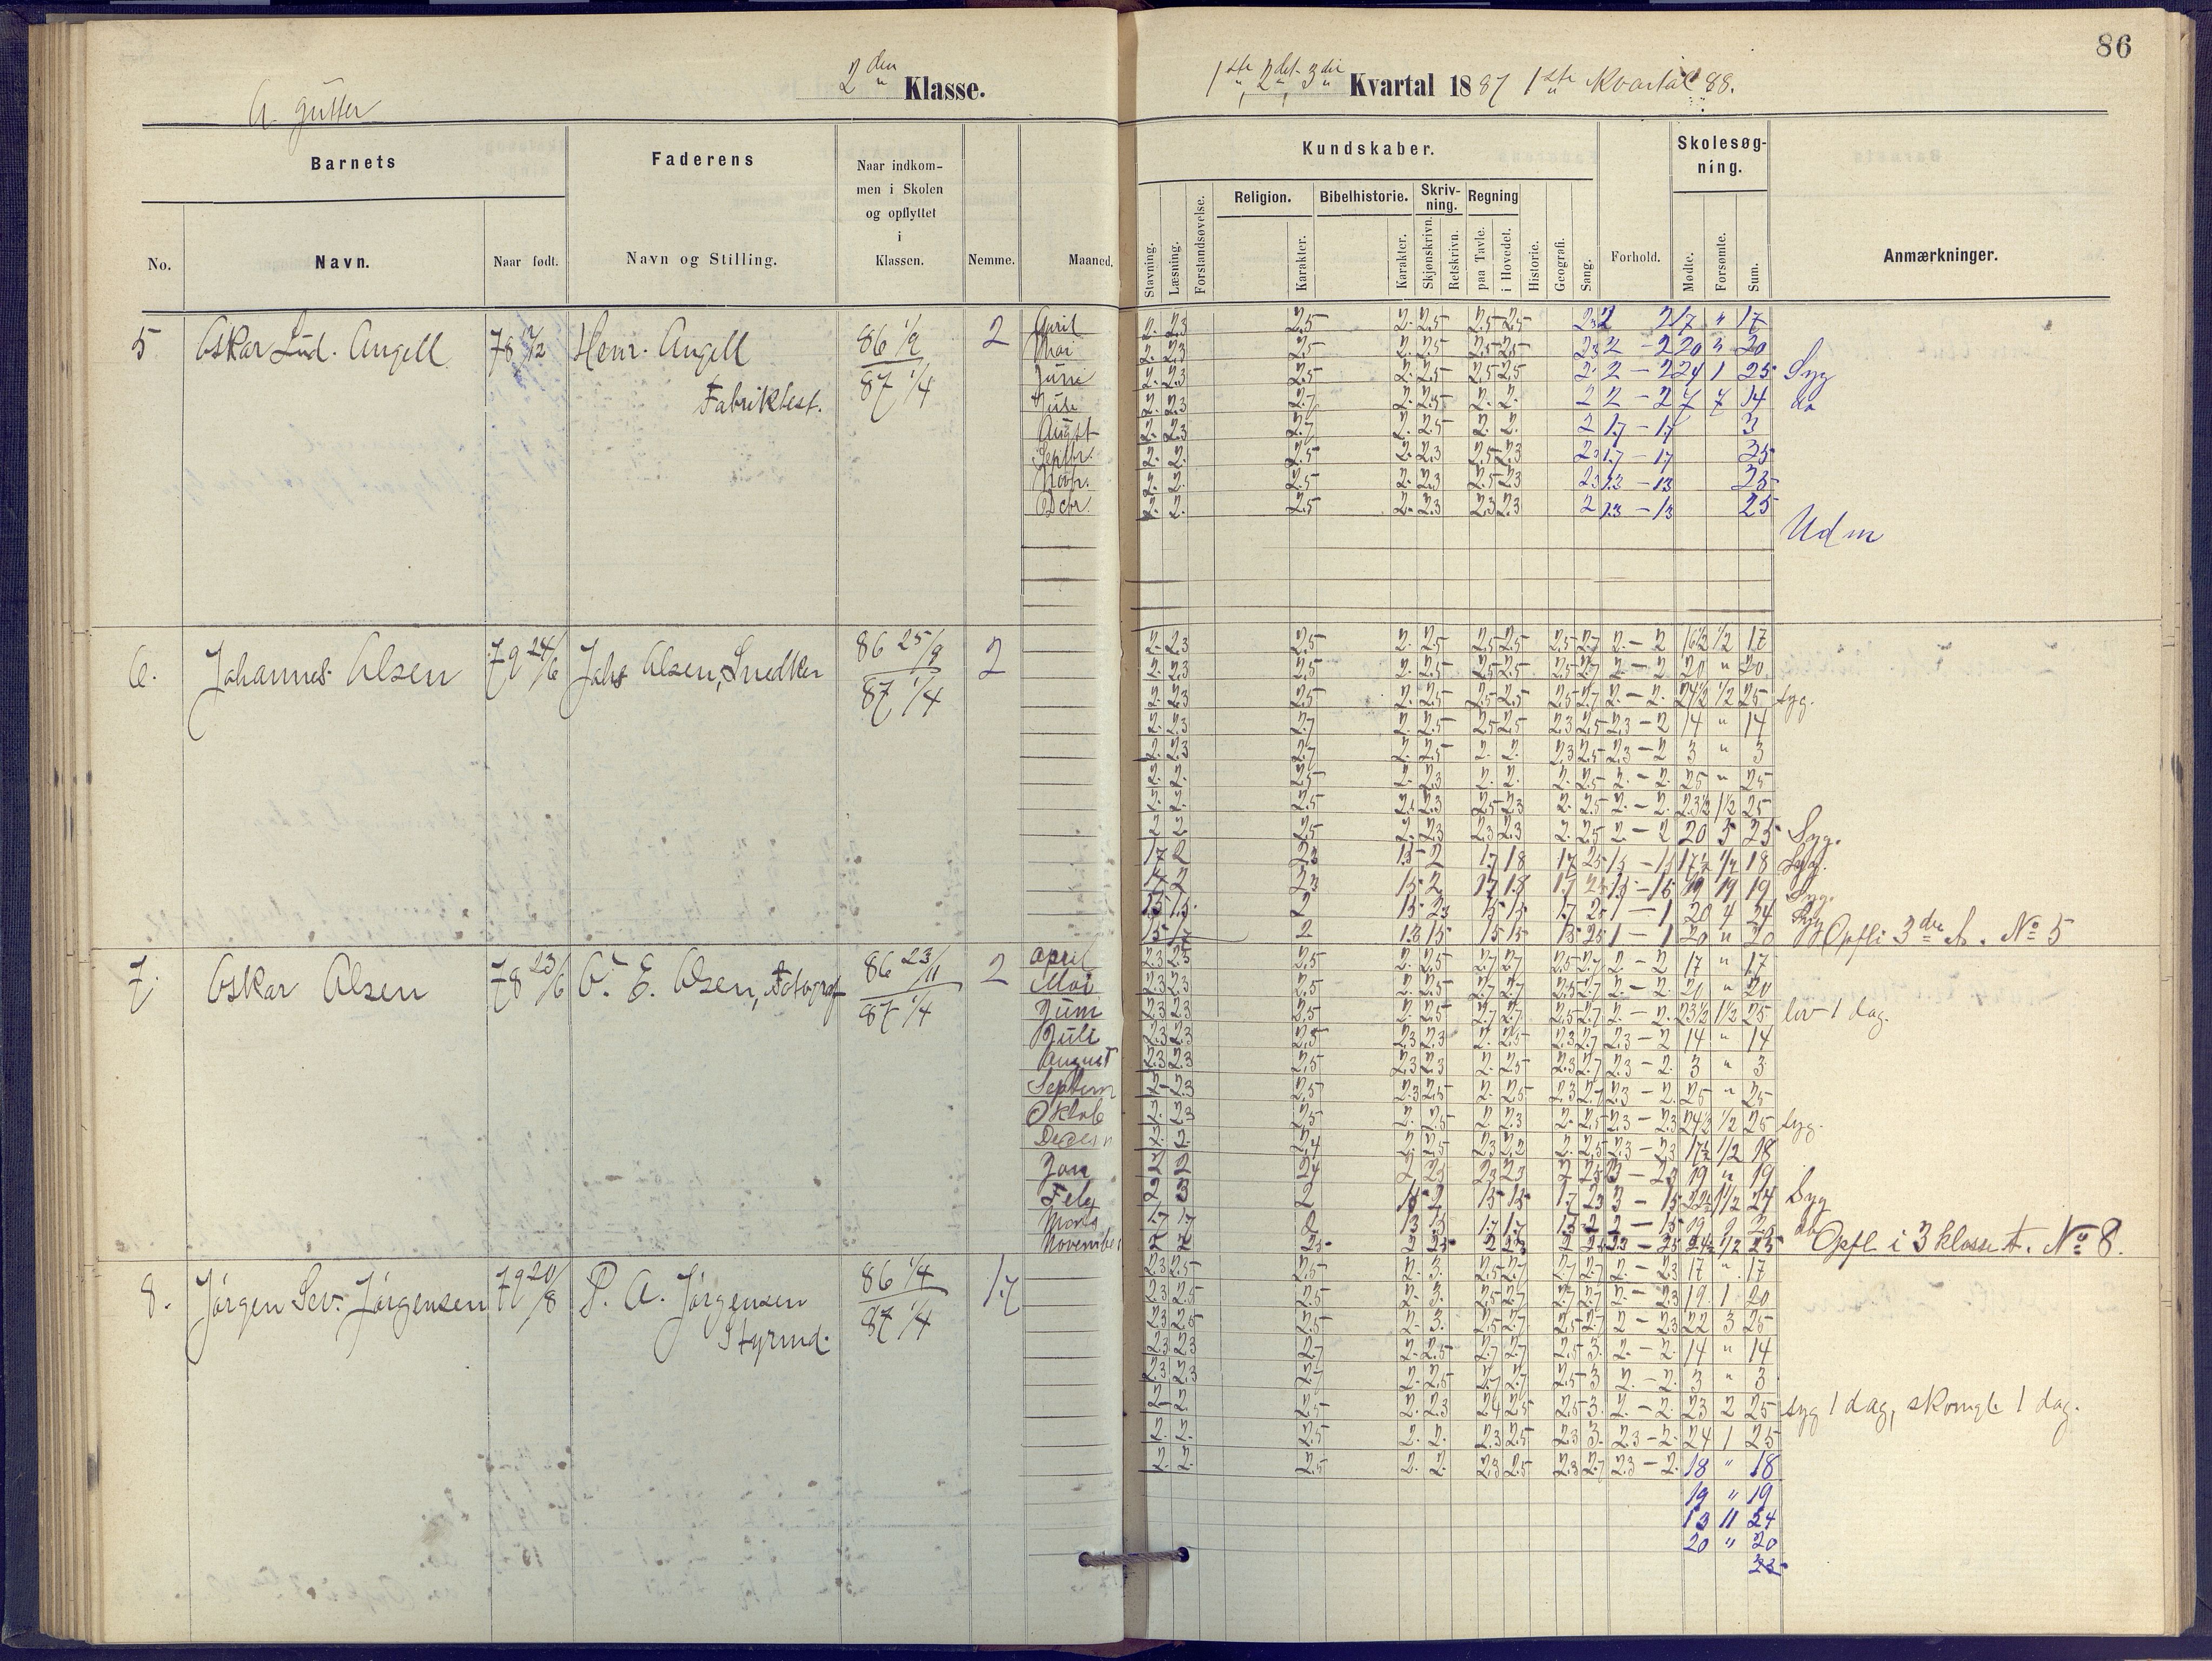 86
A. gutter
2den Klasse.
1ste, 2det, 3die Kvartal 1887 1ste Kvartal 88.
Barnets
Faderens
Naar indkom-
men i Skolen
og opflyttet
i
Klassen.
Nemme.
Maaned.
No.
Navn.
Naar født.
Navn og Stilling.
Kundskaber.
Skolesøg-
ning.
Religion.
Bibelhistorie.
Skriv-
ning.
Regning
Stavning.
Læsning.
Forstandsøvelse.
Karakter.
Karakter.
Skjønskrivn.
Retskrivn.
paa Tavle.
i Hovedet.
Historie.
Geografi.
Sang.
Forhold.
Mødte.
Forsømte.
Sum.
Anmærkninger.
5 Oskar Lud. Angell 78 Henr. Angell 86 1/9 2
Fabrikbest. 87 1/4
April 2. 2.3 2.5 2. 2.5 2.5 2.5 17 " 17
Mai 2. 2.3 2.5 2. 2.5 2.5 2.5 2 - 2 20 " 20
Juni 2. 2.3 2.5 2. 2.5 2.5 2.5 2 2 - 2 24 1 25 Syg
Juli 2. 2.3 2.7 2. 2.5 2. 2. 2 2 - 2 7 7 14 do
August 2. 2.3 2.7 2. 2.5 2. 2. 2 1.7 - 1.7 3
Septbr. 2. 2. 2.5 2. 2.3 2.5 2.3 1.7 - 1.7 25
Novbr. 2. 2. 2.5 2. 2.3 2.5 2.3 25
Dcbr. 2. 2. 2.5 2. 2.3 2.3 2.3 2 25
Udm
6. Johannes Olsen 79 24/6 Johs Olsen, Snedker 86 25/9 2
87 1/4
2. 2.3 2.5 2. 2.5 2.5 2.5 2.5 2.7 2. - 2 16 1/2 1/2 17
2. 2.3 2.5 2. 2.5 2.5 2.5 2.5 2.7 2. - 2. 20 " 20
2. 2.3 2.5 2. 2.5 2.5 2.5 2.5 2.7 2. - 2. 24 1/2 1/2 25 syg.
2. 2.3 2.7 2. 2.5 2.5 2.5 2.3 2.5 2.3 - 2 14 " 14
2. 2.3 2.7 2. 2.5 2. 2. 2.3 2.5 2.3 - 2 3 " 3
2. 2. 2.5 2. 2.3 2. 2. 2. 2.5 2. - 2. 25 " 25
2. 2. 2.5 2.3 2.5 2.3 2. 2.5 2. - 2. 23 1/2 1 1/2 25
2 2 2.5 2. 2.3 2.3 2.3 2. 2.5 2. - 2 20 5 25 Syg.
1.7 2 2.3 2 1.7 1.8 1.7 2.5 18 Syg.
2 2.3 1.5 2 1.7 1.8 1.7 19 Syg.
2 1.7 1 - 1 20 4 24 Syg
2 1 - 1 20 " 20 Opfl i 3die A. No 5
7. Oskar Olsen 78 23/6 O. E. Olsen, Fotograf 86 23/11 2
87 1/4
April 2.3 2.5 2.5 2. 2.5 2.7 2.7 2.5 2.7 2. - 2 17 " 17
Mai 2.3 2.3 2.5 2. 2.5 2.7 2.7 2.5 2.7 2. - 2. 20 " 20
Juni 2.3 2.3 2.5 2. 2.5 2.7 2.7 2.5 2.7 2. - 2. 23 1/2 1 1/2 25 lov 1 dag.
Juli 2.3 2.3 2.5 2.3 2.3 2. 2.5 2.3 2.7 2.3 - 2 14 " 14
August 2.3 2.3 2.5 2.3 2.3 2. 2.5 2.3 2.7 2.3 - 2. 3 " 3
Septem 2. 2.3 2.5 2.3 2.5 2. 2.5 2.3 2.7 2.3 - 2. 25 " 25
Oktob 2. 2.3 2.5 2. 2.5 2 2.3 2. 2.5 2.3 - 2.3 24 1/2 1/2 25 syg.
Decem 2. 2. 2.4 2. 2.5 2.3 2.2 2. 2.5 2.3 - 2.3 17 1/2 1/2 18
Jan 2 2 2.4 2 2.3 2.3 2.3 2 19 " 19
Feby 2 3 2 24 Syg
Marts 1.7 1.7 2 1.3 1.7 1.7 19 do
November 2 2 2.5 2 2.5 2 1/2 25 Opfl. i 3 klasse A. No 8.
8. Jørgen Sev. Jørgensen 79 20/8 P. A. Jørgensen 86 1/4 1.7
Styrmd. 87 1/4
2.3 2.5 2.5 2. 3. 2.5 2.7 2.7 2.7 2. - 2.3 17 " 17
2.3 2.5 2.5 2. 3. 2.5 2.7 2.7 2.7 2 - 2.3 19. 1 20
2.3 2.5 2.5 2. 3. 2.5 2.7 2.5 2.7 2 - 2.3 22 3 25
2.3 2.3 2.7 2. 2.5 2.7 2.7 2.5 3. 2. - 2. 14 " 14
2.3 2.3 2.7 2. 2.5 2.7 2.7 2.5 3 2. - 2. 3 " 3
2. 2. 2.5 2. 2.3 2.4 2.5 2.5 3. 2. - 2. 23 2 25 syg 1 dag, skomgl. 1 dag.
2. 2. 2.5 2. 2. 2.3 2.5 2.3 3. 2.3 - 2. 24 1 25
2. 2. 2.5 2. 2. 2.3 2.5 2.3 2.7 2.3 - 2. 18 " 18
19 " 19
13 11 24
20 " 20